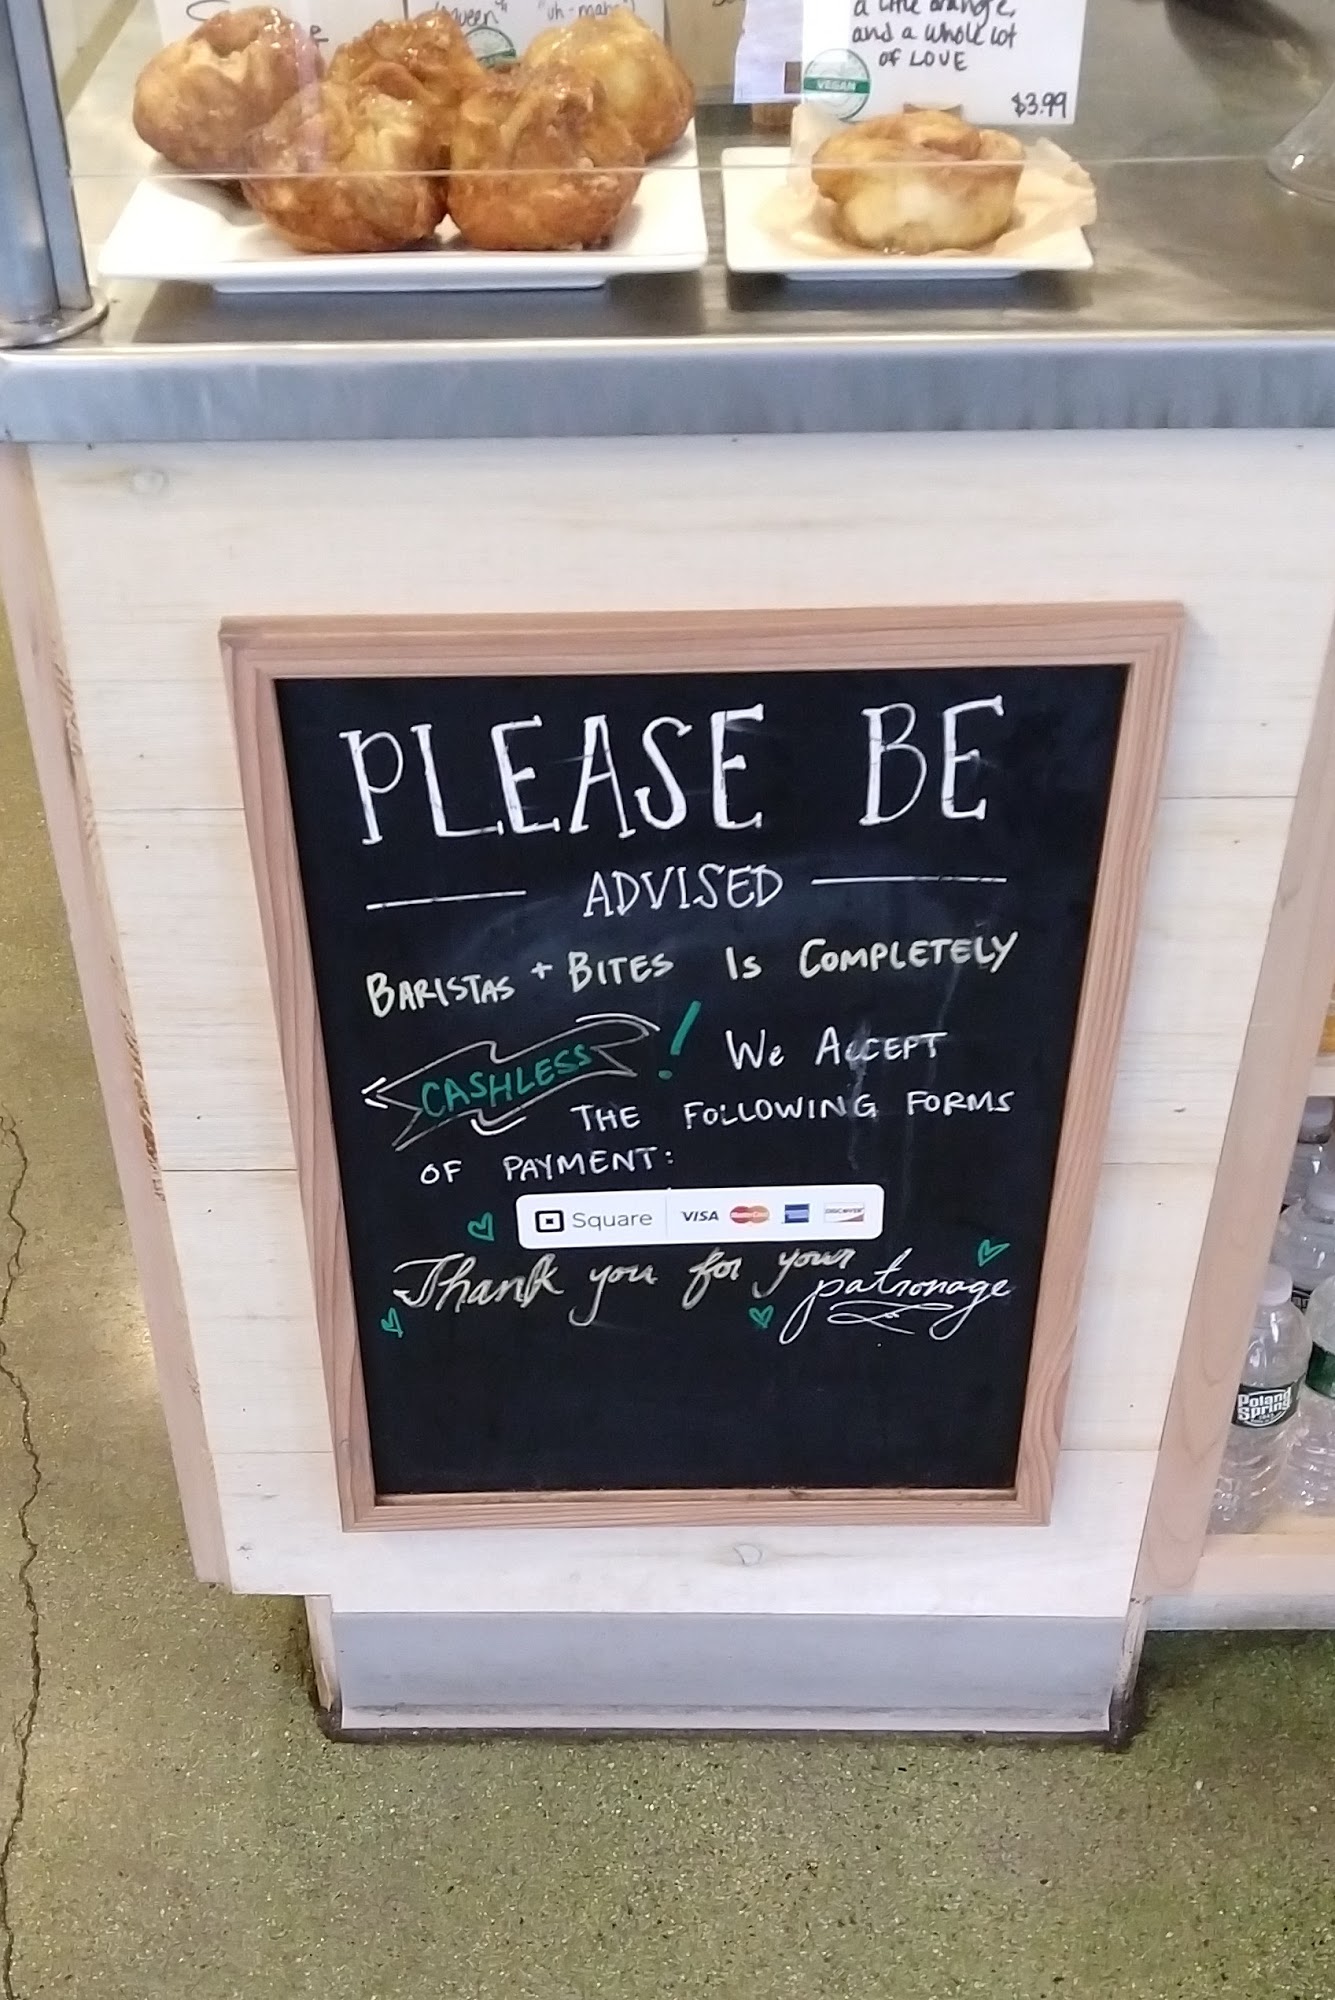 "uh-mahn"
a little orange,
and a whole lot
OF LOVE
VEGAN
$3.99
PLEASE BE
ADVISED
BARISTAS + BITES IS COMPLETELY
CASHLESS! WE ACCEPT
THE FOLLOWING FORMS
OF PAYMENT:
Square VISA MasterCard DISCOVER
Thank you for your
patronage
Poland
Spring